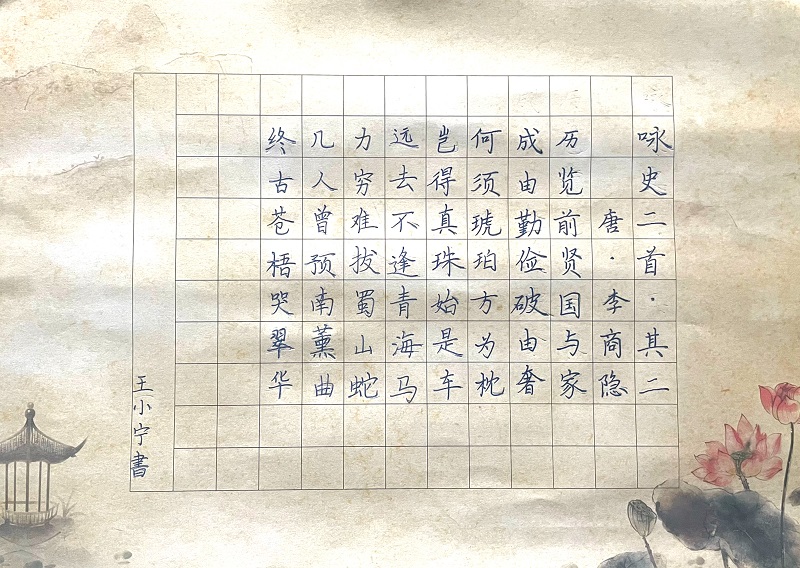 咏史二首·其二
唐·李商隐
历览前贤国与家
成由勤俭破由奢
何须琥珀方为枕
岂得真珠始是车
远去不逢青海马
力穷难拔蜀山蛇
几人曾预南薰曲
终古苍梧哭翠华
王小宁書